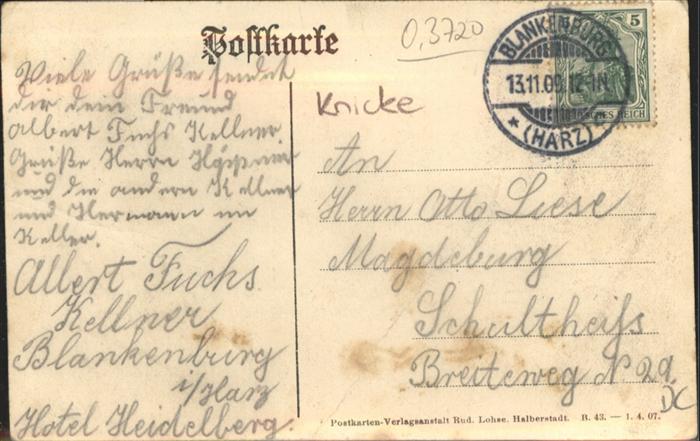 Postkarte
0,3720
Knicke
BLANKENBURG
13.11.09.12-1N.
* (HARZ)
5
DEUTSCHES REICH
Viele Grüße sendet
dir dein Freund
Albert Fuchs Kellner.
Grüße Herrn
und die andern Kellner
und Hermann im
Keller.
Albert Fuchs
Kellner
Blankenburg
i/Harz
Hotel Heidelberg.
An
Herrn Otto Liese
Magdeburg
Schultheiß
Breiteweg N 29.
DC
Postkarten-Verlagsanstalt Rud. Lohse, Halberstadt. B. 43. — 1. 4. 07.